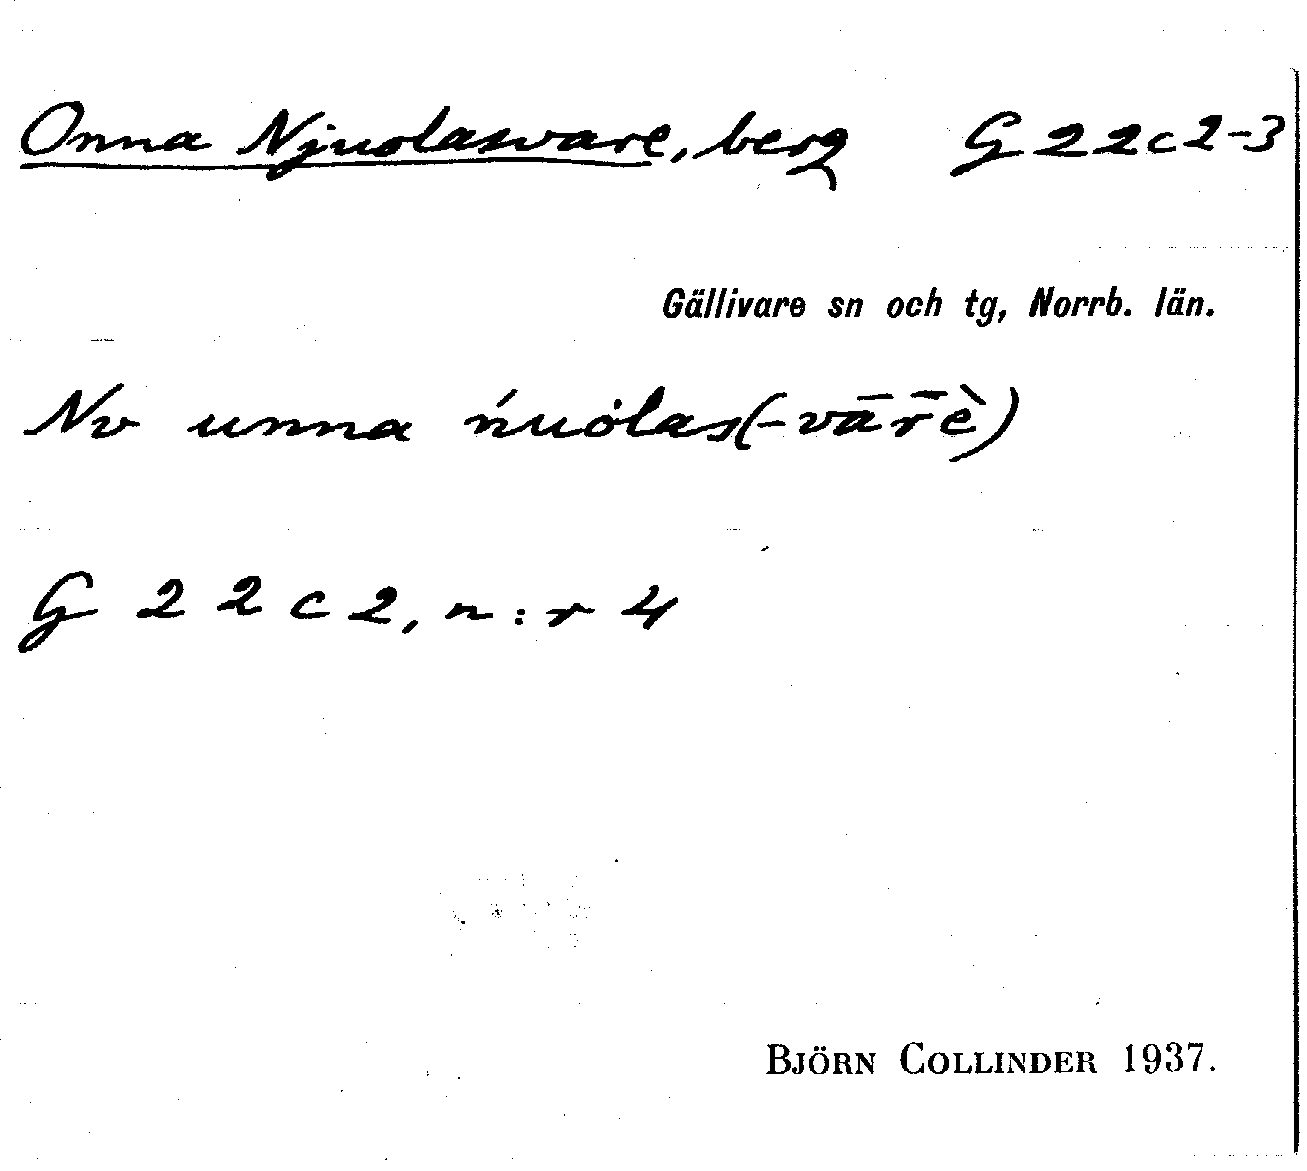 Onna Njuolasvare, berg G 22c2-3
Gällivare sn och tg, Norrb. län.
Nv unna ńuȯlas(-vār̄è)
G 22c2, n:r 4
BJÖRN COLLINDER 1937.